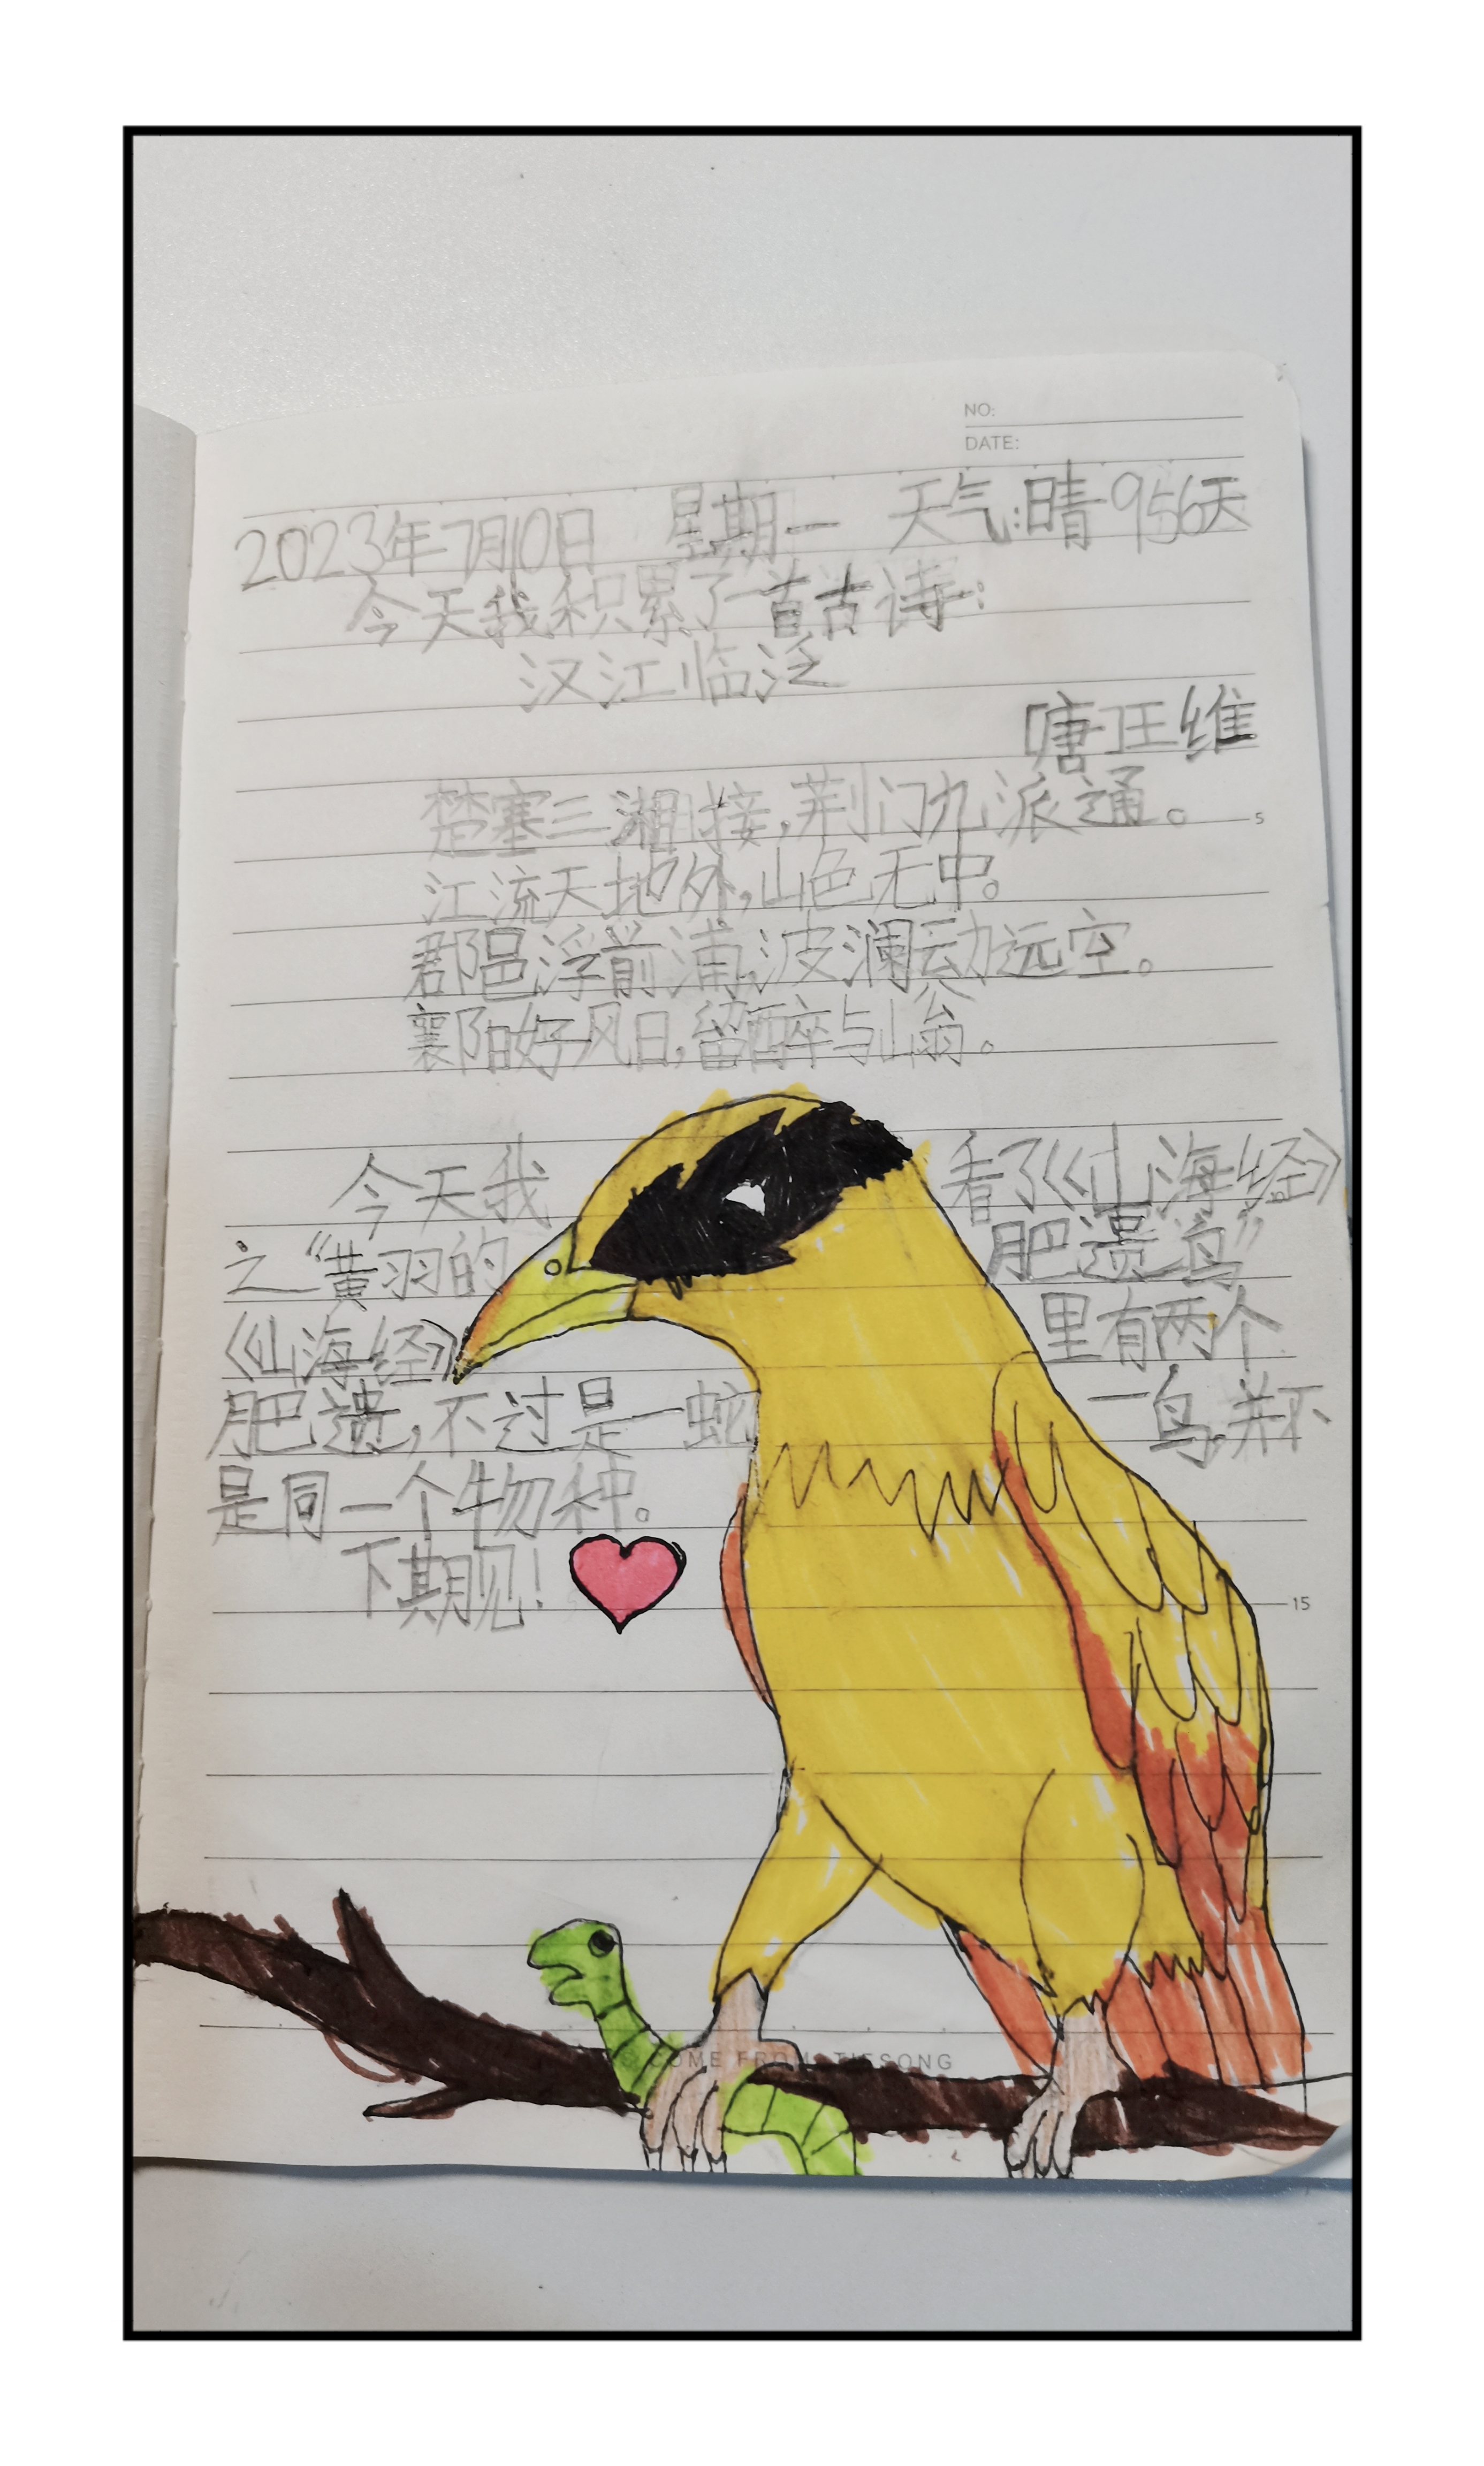 NO:
DATE:
2023年7月10日 星期一 天气:晴 956天
今天我积累了一首古诗:
汉江临泛
唐 王维
楚塞三湘接,荆门九派通。 5
江流天地外,山色无中。
郡邑浮前浦,波澜动远空。
襄阳好风日,留醉与山翁。
今天我看了《山海经》
之“黄羽的肥遗鸟”
《山海经》里有两个
肥遗,不过是一蛇一鸟,并不
是同一个物种。
下期见!
15
COME FROM TIESONG